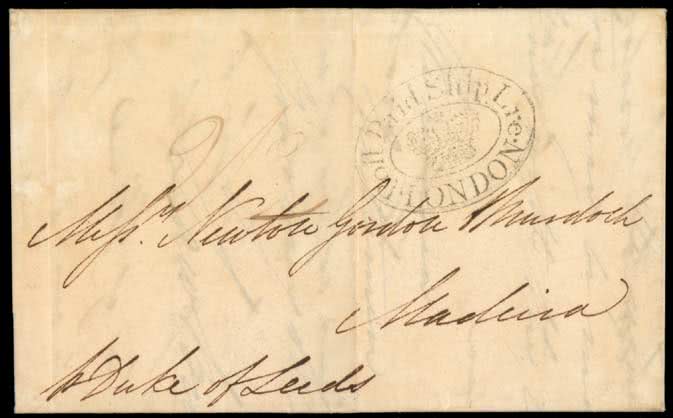 Post Paid Ship Lre.
LONDON
Messrs. Newton Gordon Murdoch
Madeira
p Duke of Leeds